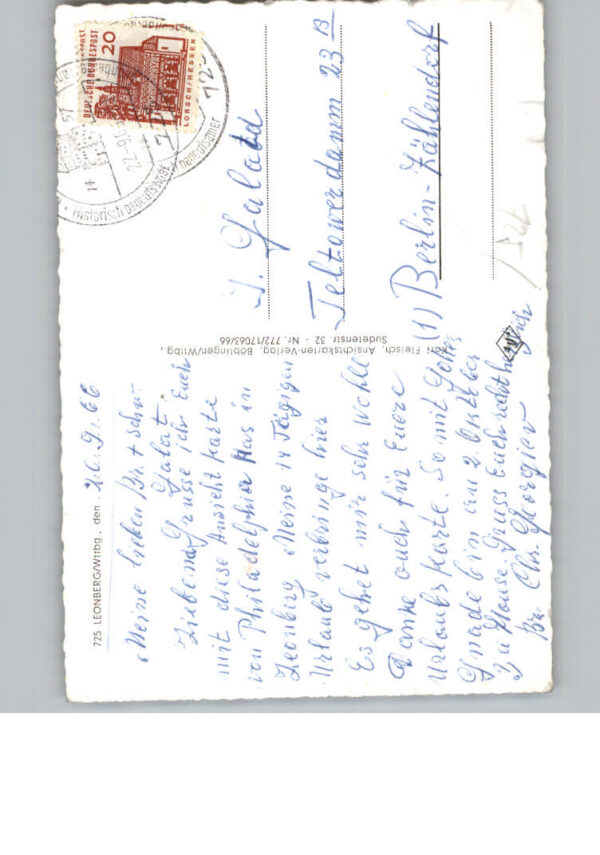 725 LEONBERG/Wttbg., den 20. 9. 66
Meine lieben Br. + Schw.
Galat
Liebend Grüsse ich Euch
mit diese Ansicht Karte
von Philadelphia Has in
Leonbeg. Meine 14 Tägigen
Urlaub verbringe hier
Es gehet mir sehr Wohl
Danke auch für Euere
Urlaubskarte. So mit Gottes
Gnade bin am 2. Oktober
zu Hause. Gruss Euch recht herzlich
Br. Chr. Georgiev
Karl Fleisch, Ansichtskarten-Verlag, Böblingen/Wttbg.,
Sudetenstr. 32 - Nr. 772/17063/66
DEUTSCHE BUNDESPOST
20
LORSCH/HESSEN
725
J. Galatd
Teltowerdamm 23 B
(1) Berlin-Zählendorf